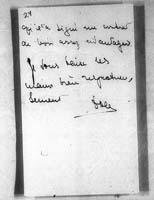 21
qu'il a signé un contrat
de lion assez avantageux
Je vous baise les
mains bien respectueu-
sement